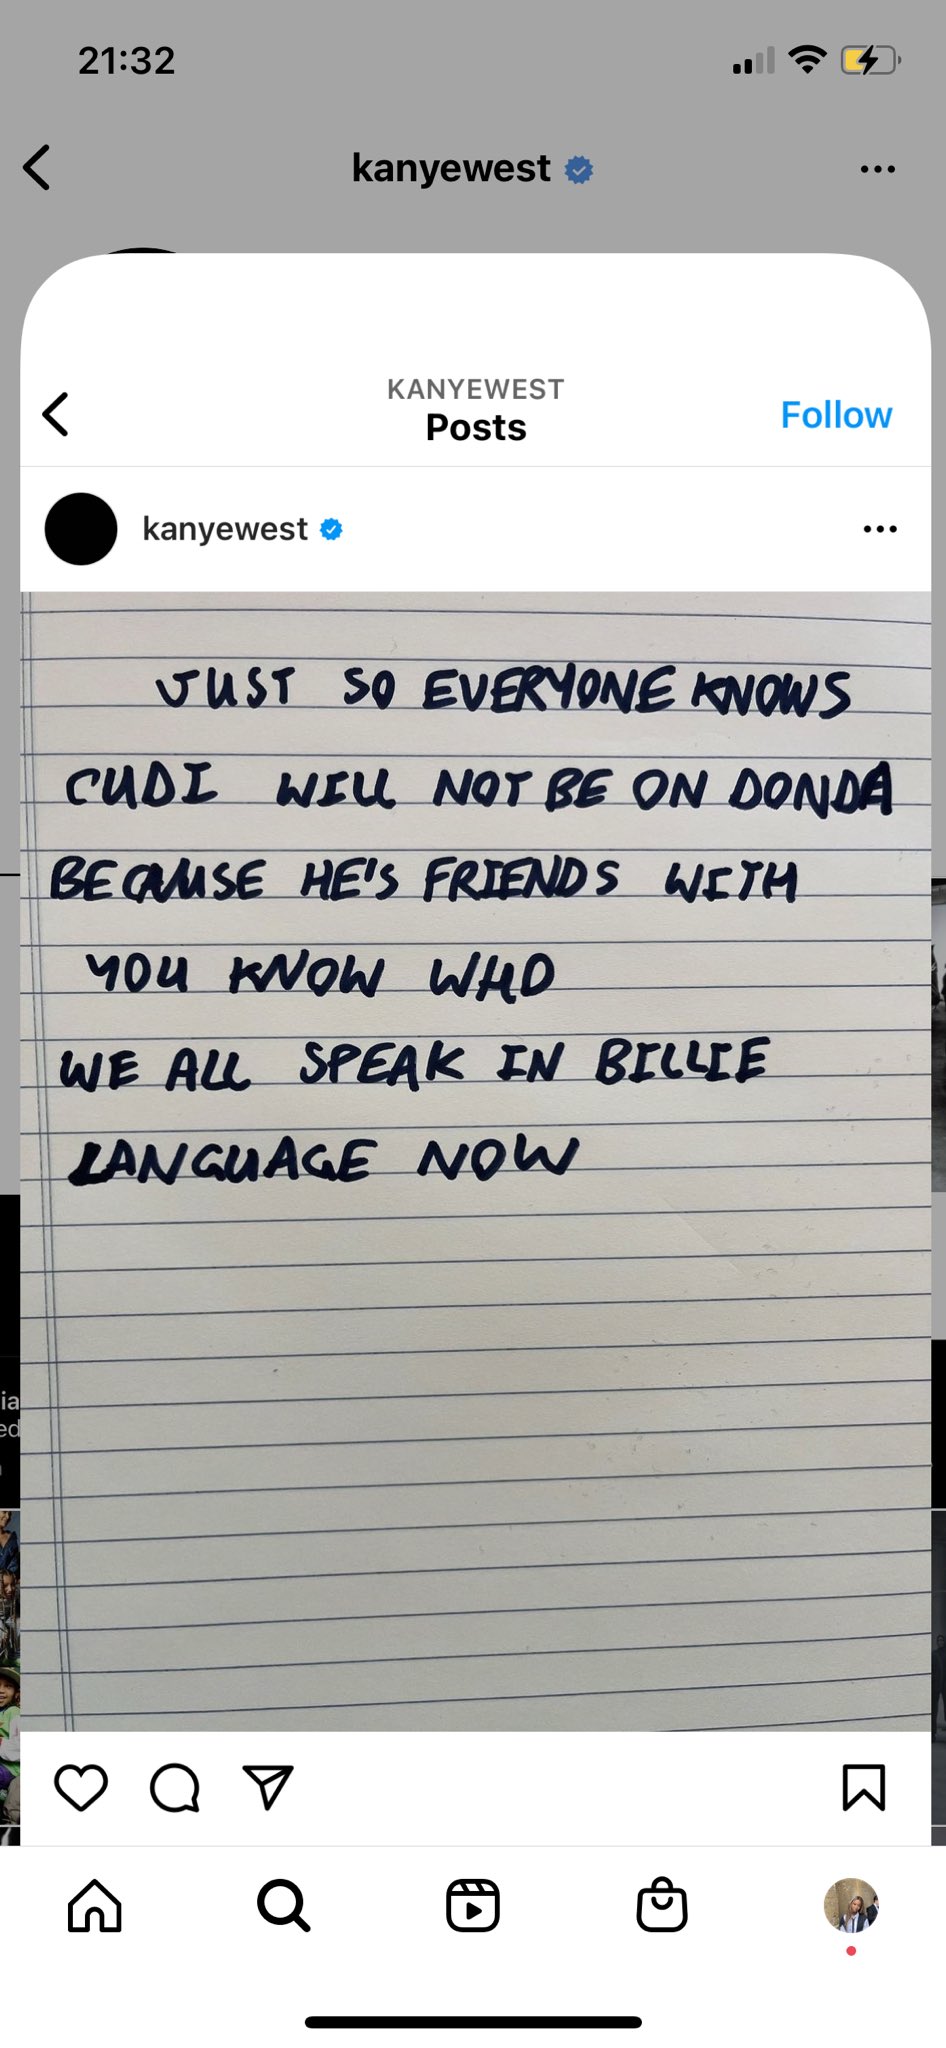 21:32
kanyewest
KANYEWEST
Posts
Follow
kanyewest
JUST SO EVERYONE KNOWS
CUDI WILL NOT BE ON DONDA
BECAUSE HE'S FRIENDS WITH
YOU KNOW WHO
WE ALL SPEAK IN BILLIE
LANGUAGE NOW
ia
ed